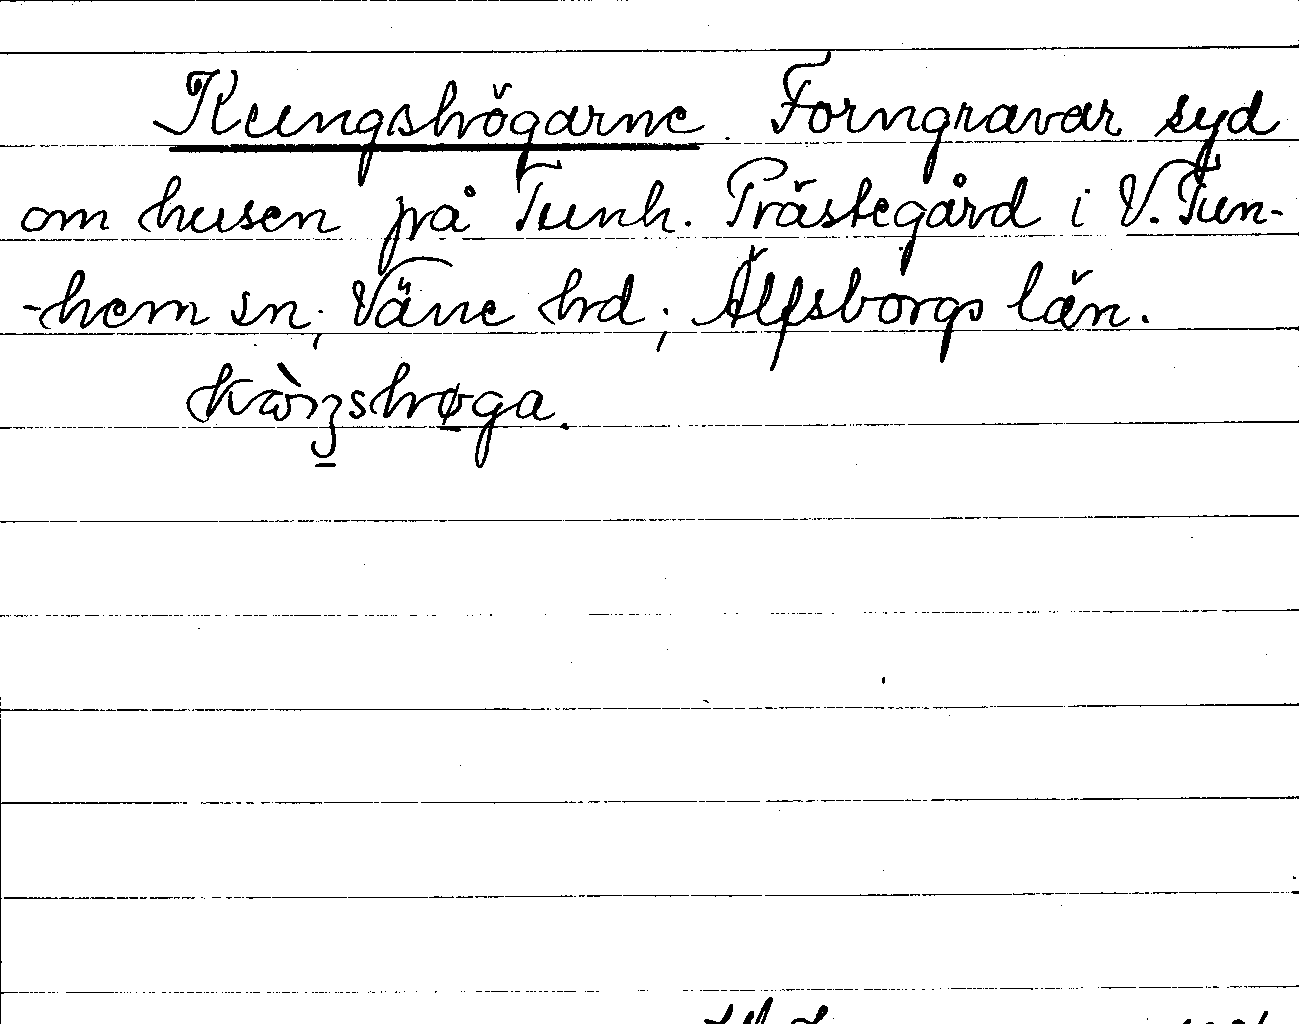 Kungshögarne. Forngravar syd
om husen på Tunh. Prästegård i V. Tun-
-hem sn; Väne hd; Älfsborgs län.
kòŋshøga.